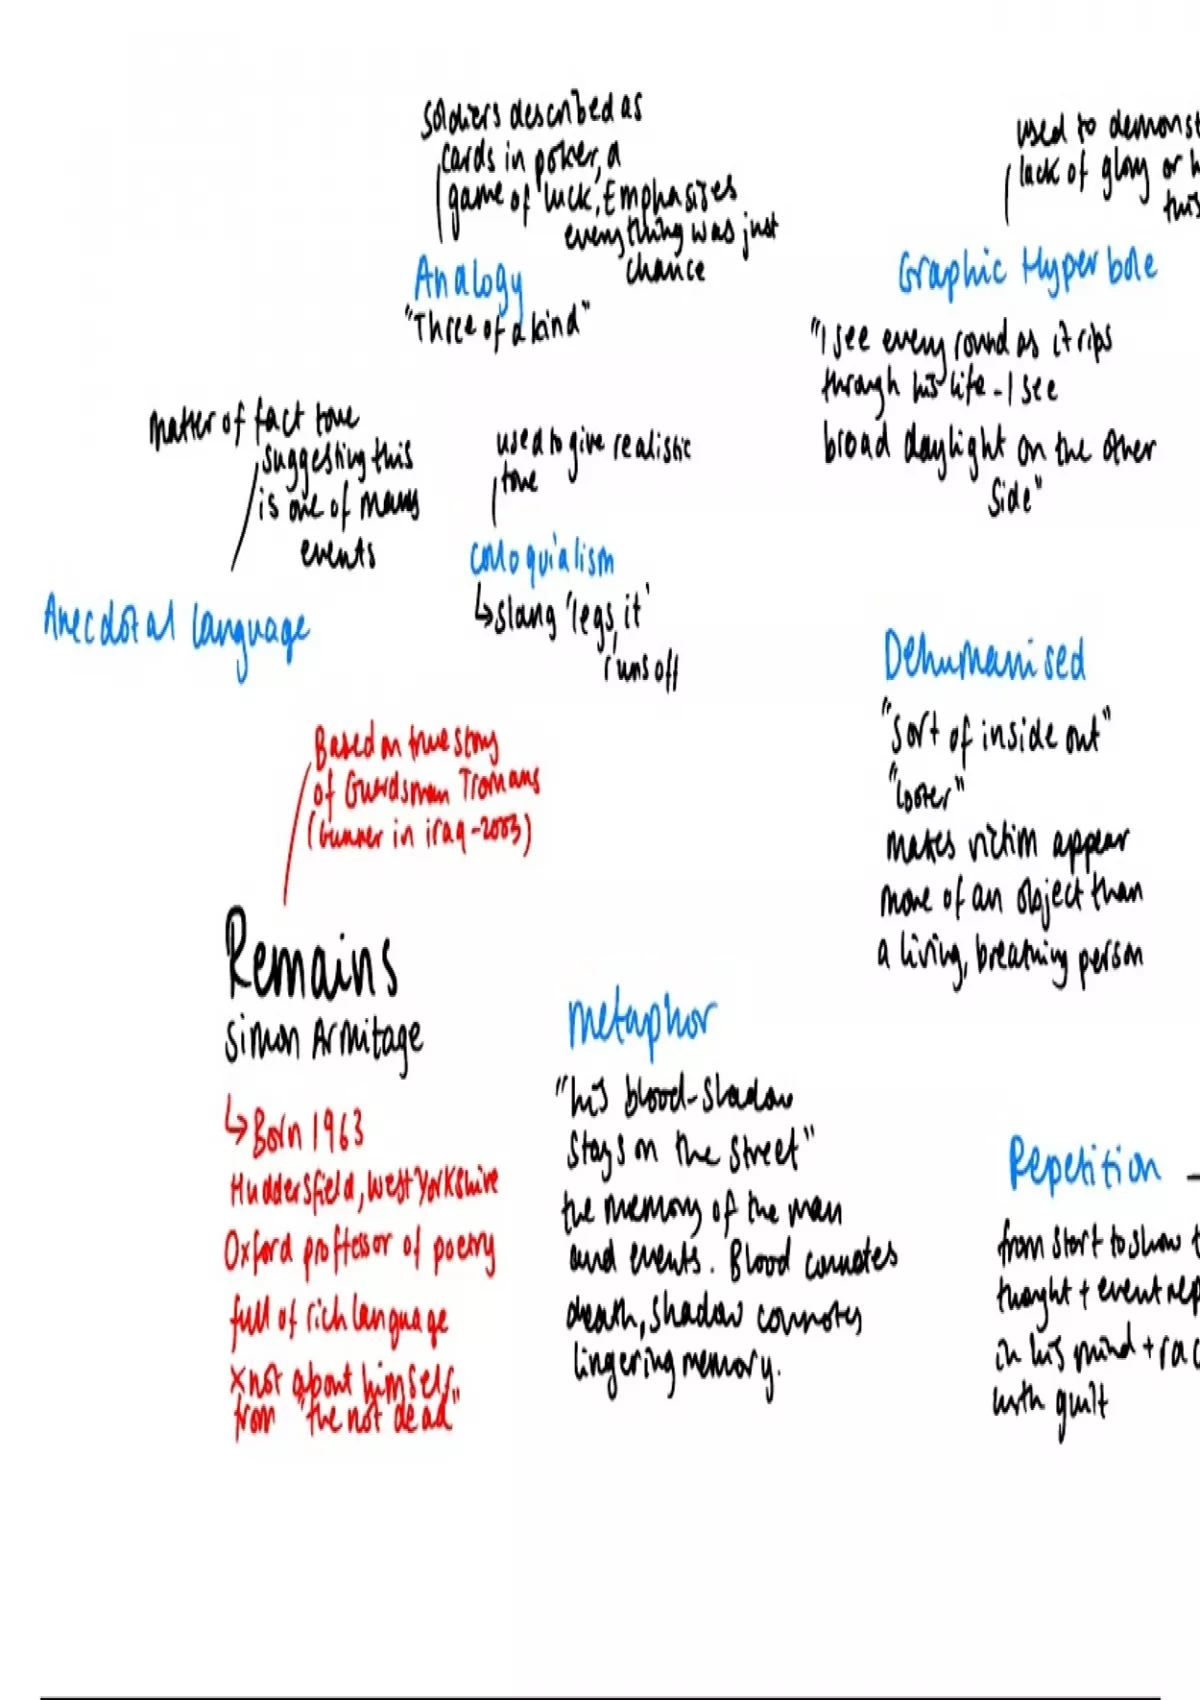 soldiers described as
cards in poker, a
game of luck, Emphasises
everything was just
chance
Analogy
"Three of a kind"
used to demonst
lack of glory or h
this
Graphic Hyperbole
"I see every round as it rips
through his life - I see
broad daylight on the other
side"
matter of fact tone
suggesting this
is one of many
events
Anecdotal language
used to give realistic
tone
colloquialism
↳ slang 'legs it'
runs off
Dehumanised
"sort of inside out"
"looter"
makes victim appear
more of an object than
a living, breathing person
Based on true story
of Guardsman Tromans
(Gunner in iraq - 2003)
Remains
Simon Armitage
↳ Born 1963
Huddersfield, West Yorkshire
Oxford proffessor of poetry
full of rich language
x not about himself,
from "the not dead"
metaphor
"his blood-shadow
stays on the street"
the memory of the man
and events. Blood connotes
death, shadow connotes
lingering memory.
Repetition -
from start to show t
thought + event rep
in his mind + rac
with guilt